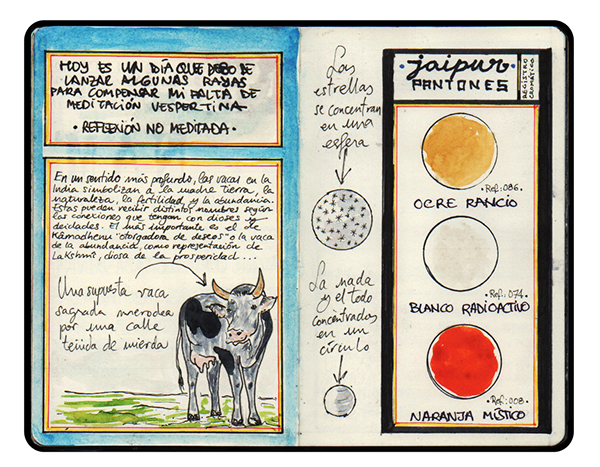 HOY ES UN DÍA QUE DEBO DE
LANZAR ALGUNAS RAYAS
PARA COMPENSAR MI FALTA DE
MEDITACIÓN VESPERTINA
· REFLEXIÓN NO MEDITADA ·
En un sentido más profundo, las vacas en la
India simbolizan a la madre tierra, la
naturaleza, la fertilidad, y la abundancia.
Estas pueden recibir distintos nombres según
las conexiones que tengan con dioses y
deidades. El más importante es el de
Kâmadhenu "otorgadora de deseos" o la vaca
de la abundancia, como representación de
Lakshmi, diosa de la prosperidad...
Una supuesta vaca
sagrada merodea
por una calle
teñida de mierda
Las
estrellas
se concentran
en una
esfera
La nada
y el todo
concentrados
en un
círculo
· jaipur ·
PANTONES
REGISTRO
CROMÁTICO
· Ref: 086 ·
OCRE RANCIO
· Ref: 074 ·
BLANCO RADIOACTIVO
· Ref: 008 ·
NARANJA MÍSTICO